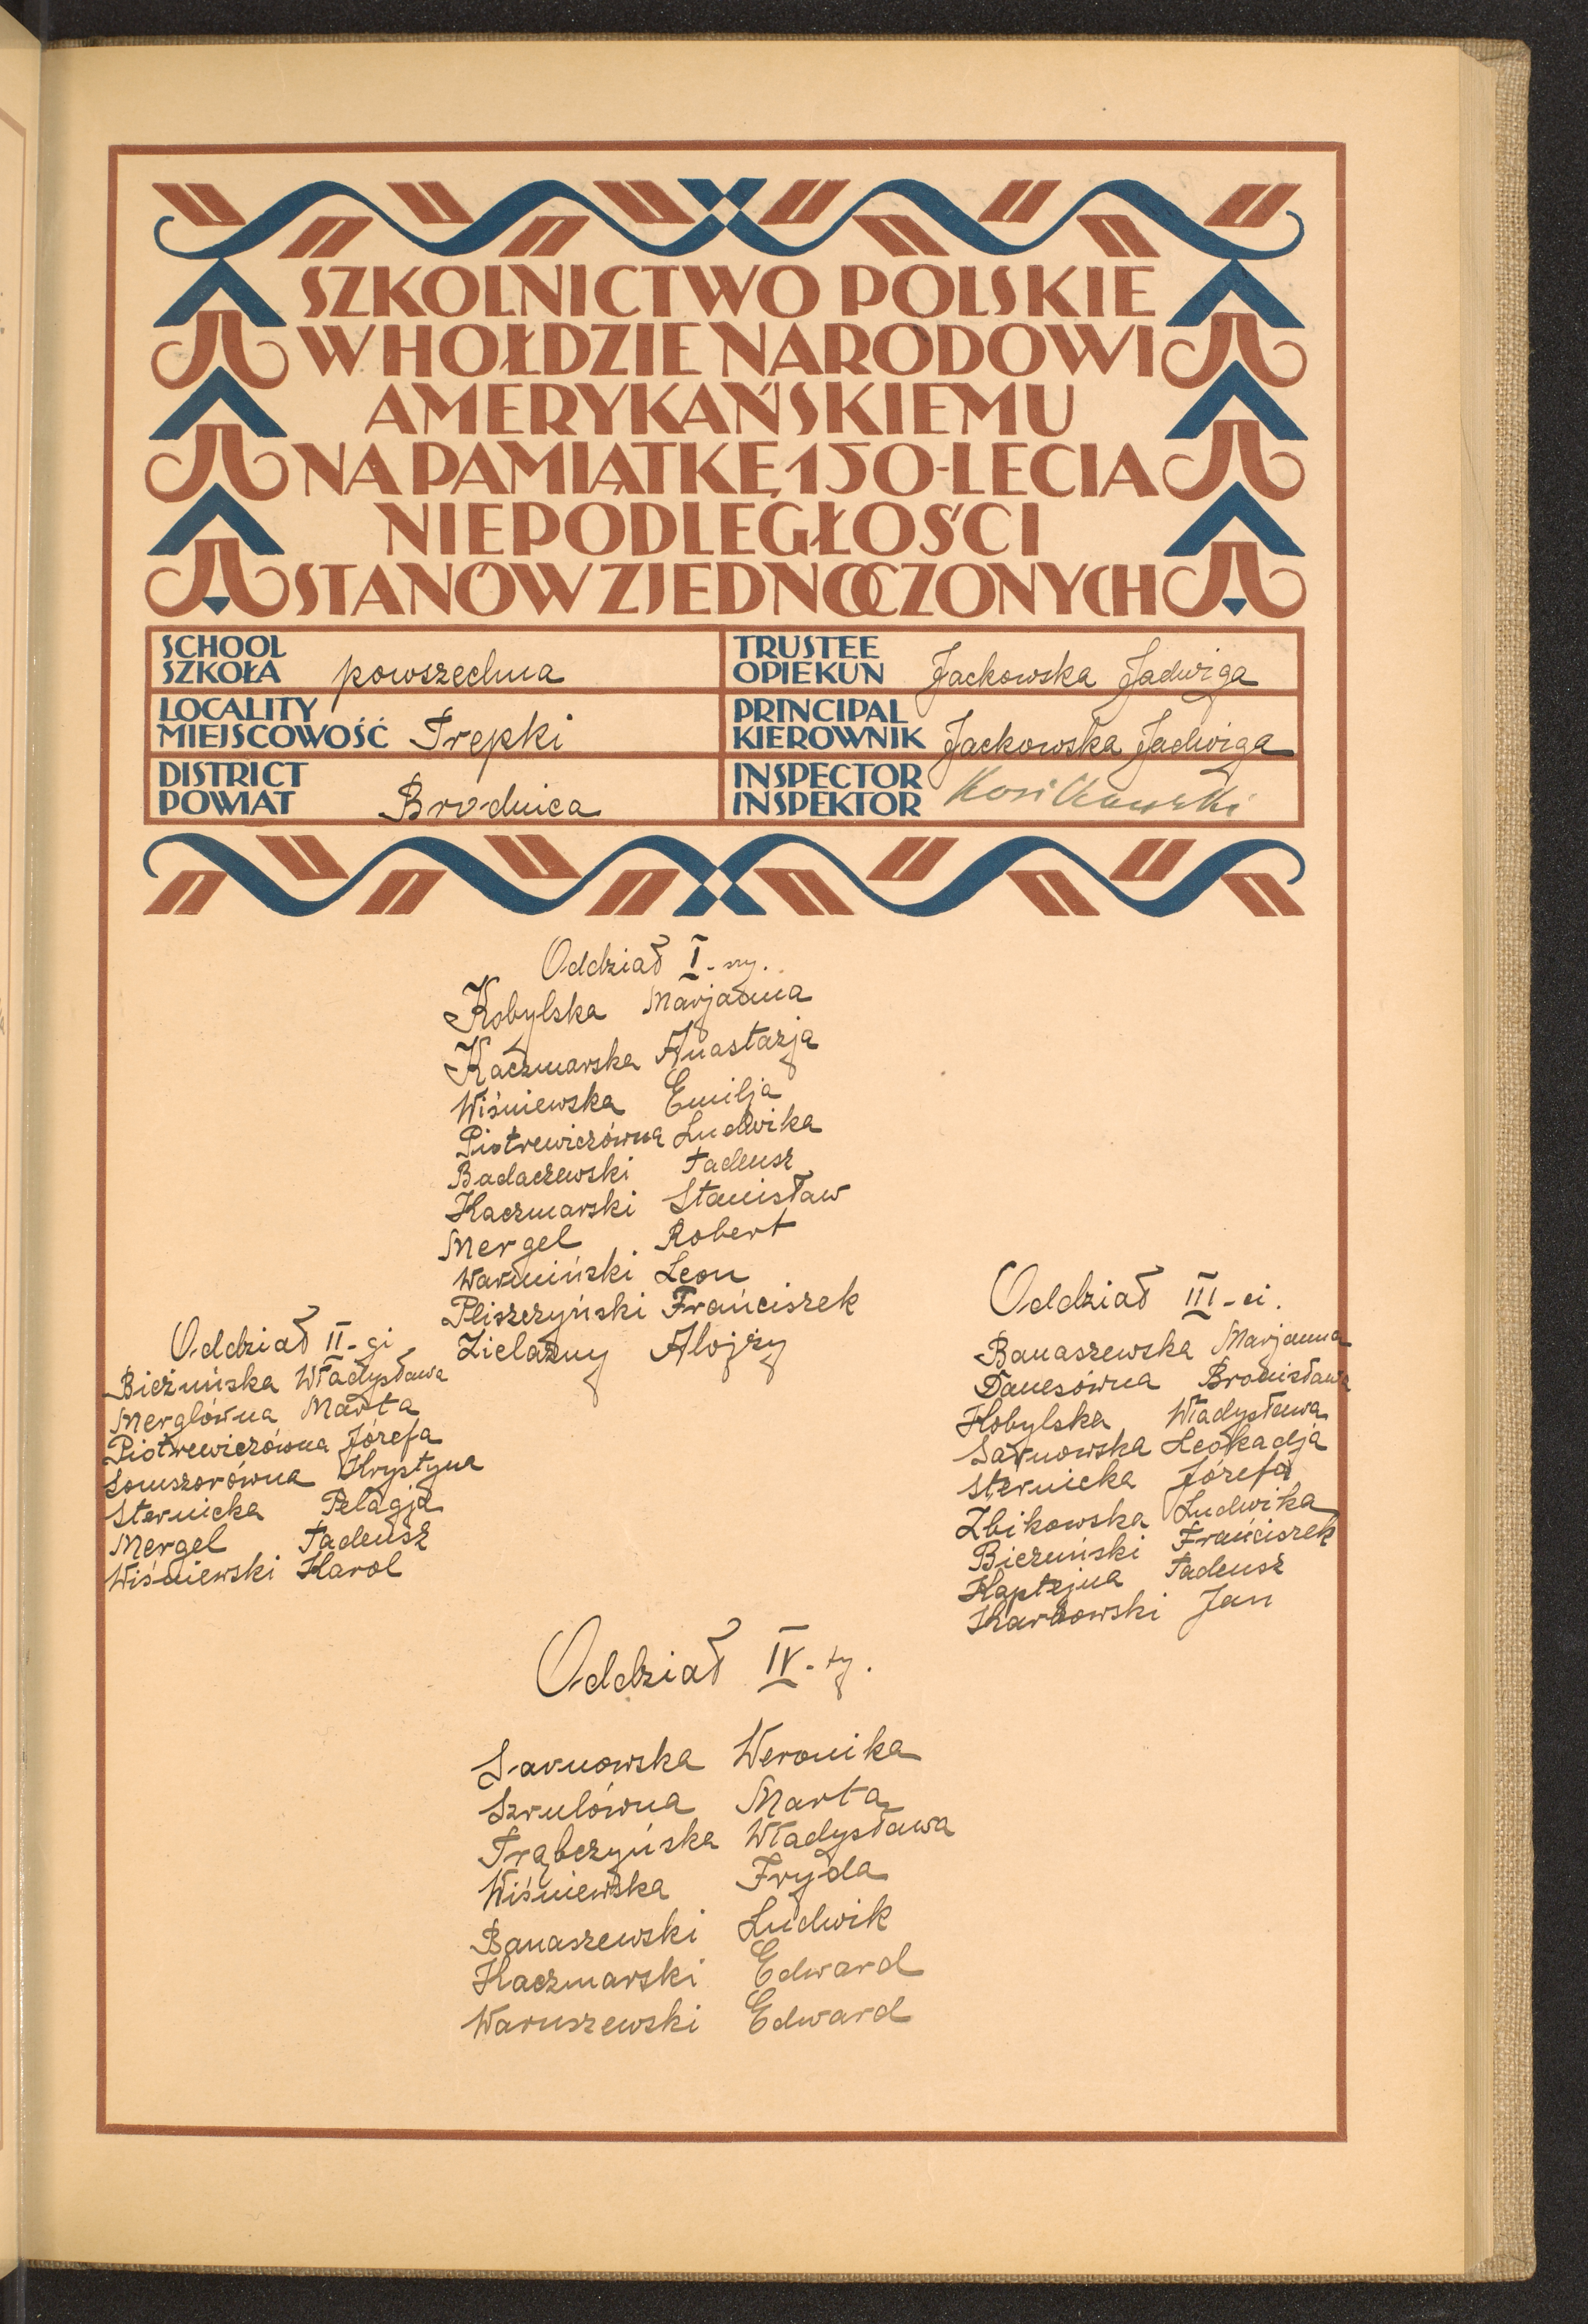 SZKOLNICTWO POLSKIE
W HOŁDZIE NARODOWI
AMERYKAŃSKIEMU
NA PAMIĄTKĘ 150-LECIA
NIEPODLEGŁOŚCI
STANÓW ZJEDNOCZONYCH
SCHOOL
SZKOŁA powszechna
TRUSTEE
OPIEKUN Jackowska Jadwiga
LOCALITY
MIEJSCOWOŚĆ Trepki
PRINCIPAL
KIEROWNIK Jackowska Jadwiga
DISTRICT
POWIAT Brodnica
INSPECTOR
INSPEKTOR
Oddział I-szy.
Kobylska Marjanna
Kaczmarska Anastazja
Wiśniewska Emilja
Piotrewiczówna Ludwika
Badaczewski Tadeusz
Kaczmarski Stanisław
Mergel Robert
Warmiński Leon
Pliszczyński Frańciszek
Zielazny Alojzy
Oddział II-gi
Bieżuńska Władysława
Merglówna Marta
Piotrewiczówna Józefa
Somszorówna Krystyna
Sternicka Pelagja
Mergel Tadeusz
Wiśniewski Karol
Oddział III-ci.
Banaszewska Marjanna
Danesówna Bronisława
Kobylska Władysława
Sarnowska Leokadja
Sternicka Józefa
Zbikowska Ludwika
Bieżuński Frańciszek
Kaptejna Tadeusz
Karbowski Jan
Oddział IV-ty.
Sarnowska Weronika
Szrulówna Marta
Trąbczyńska Władysława
Wiśniewska Fryda
Banaszewski Ludwik
Kaczmarski Edward
Waruszewski Edward